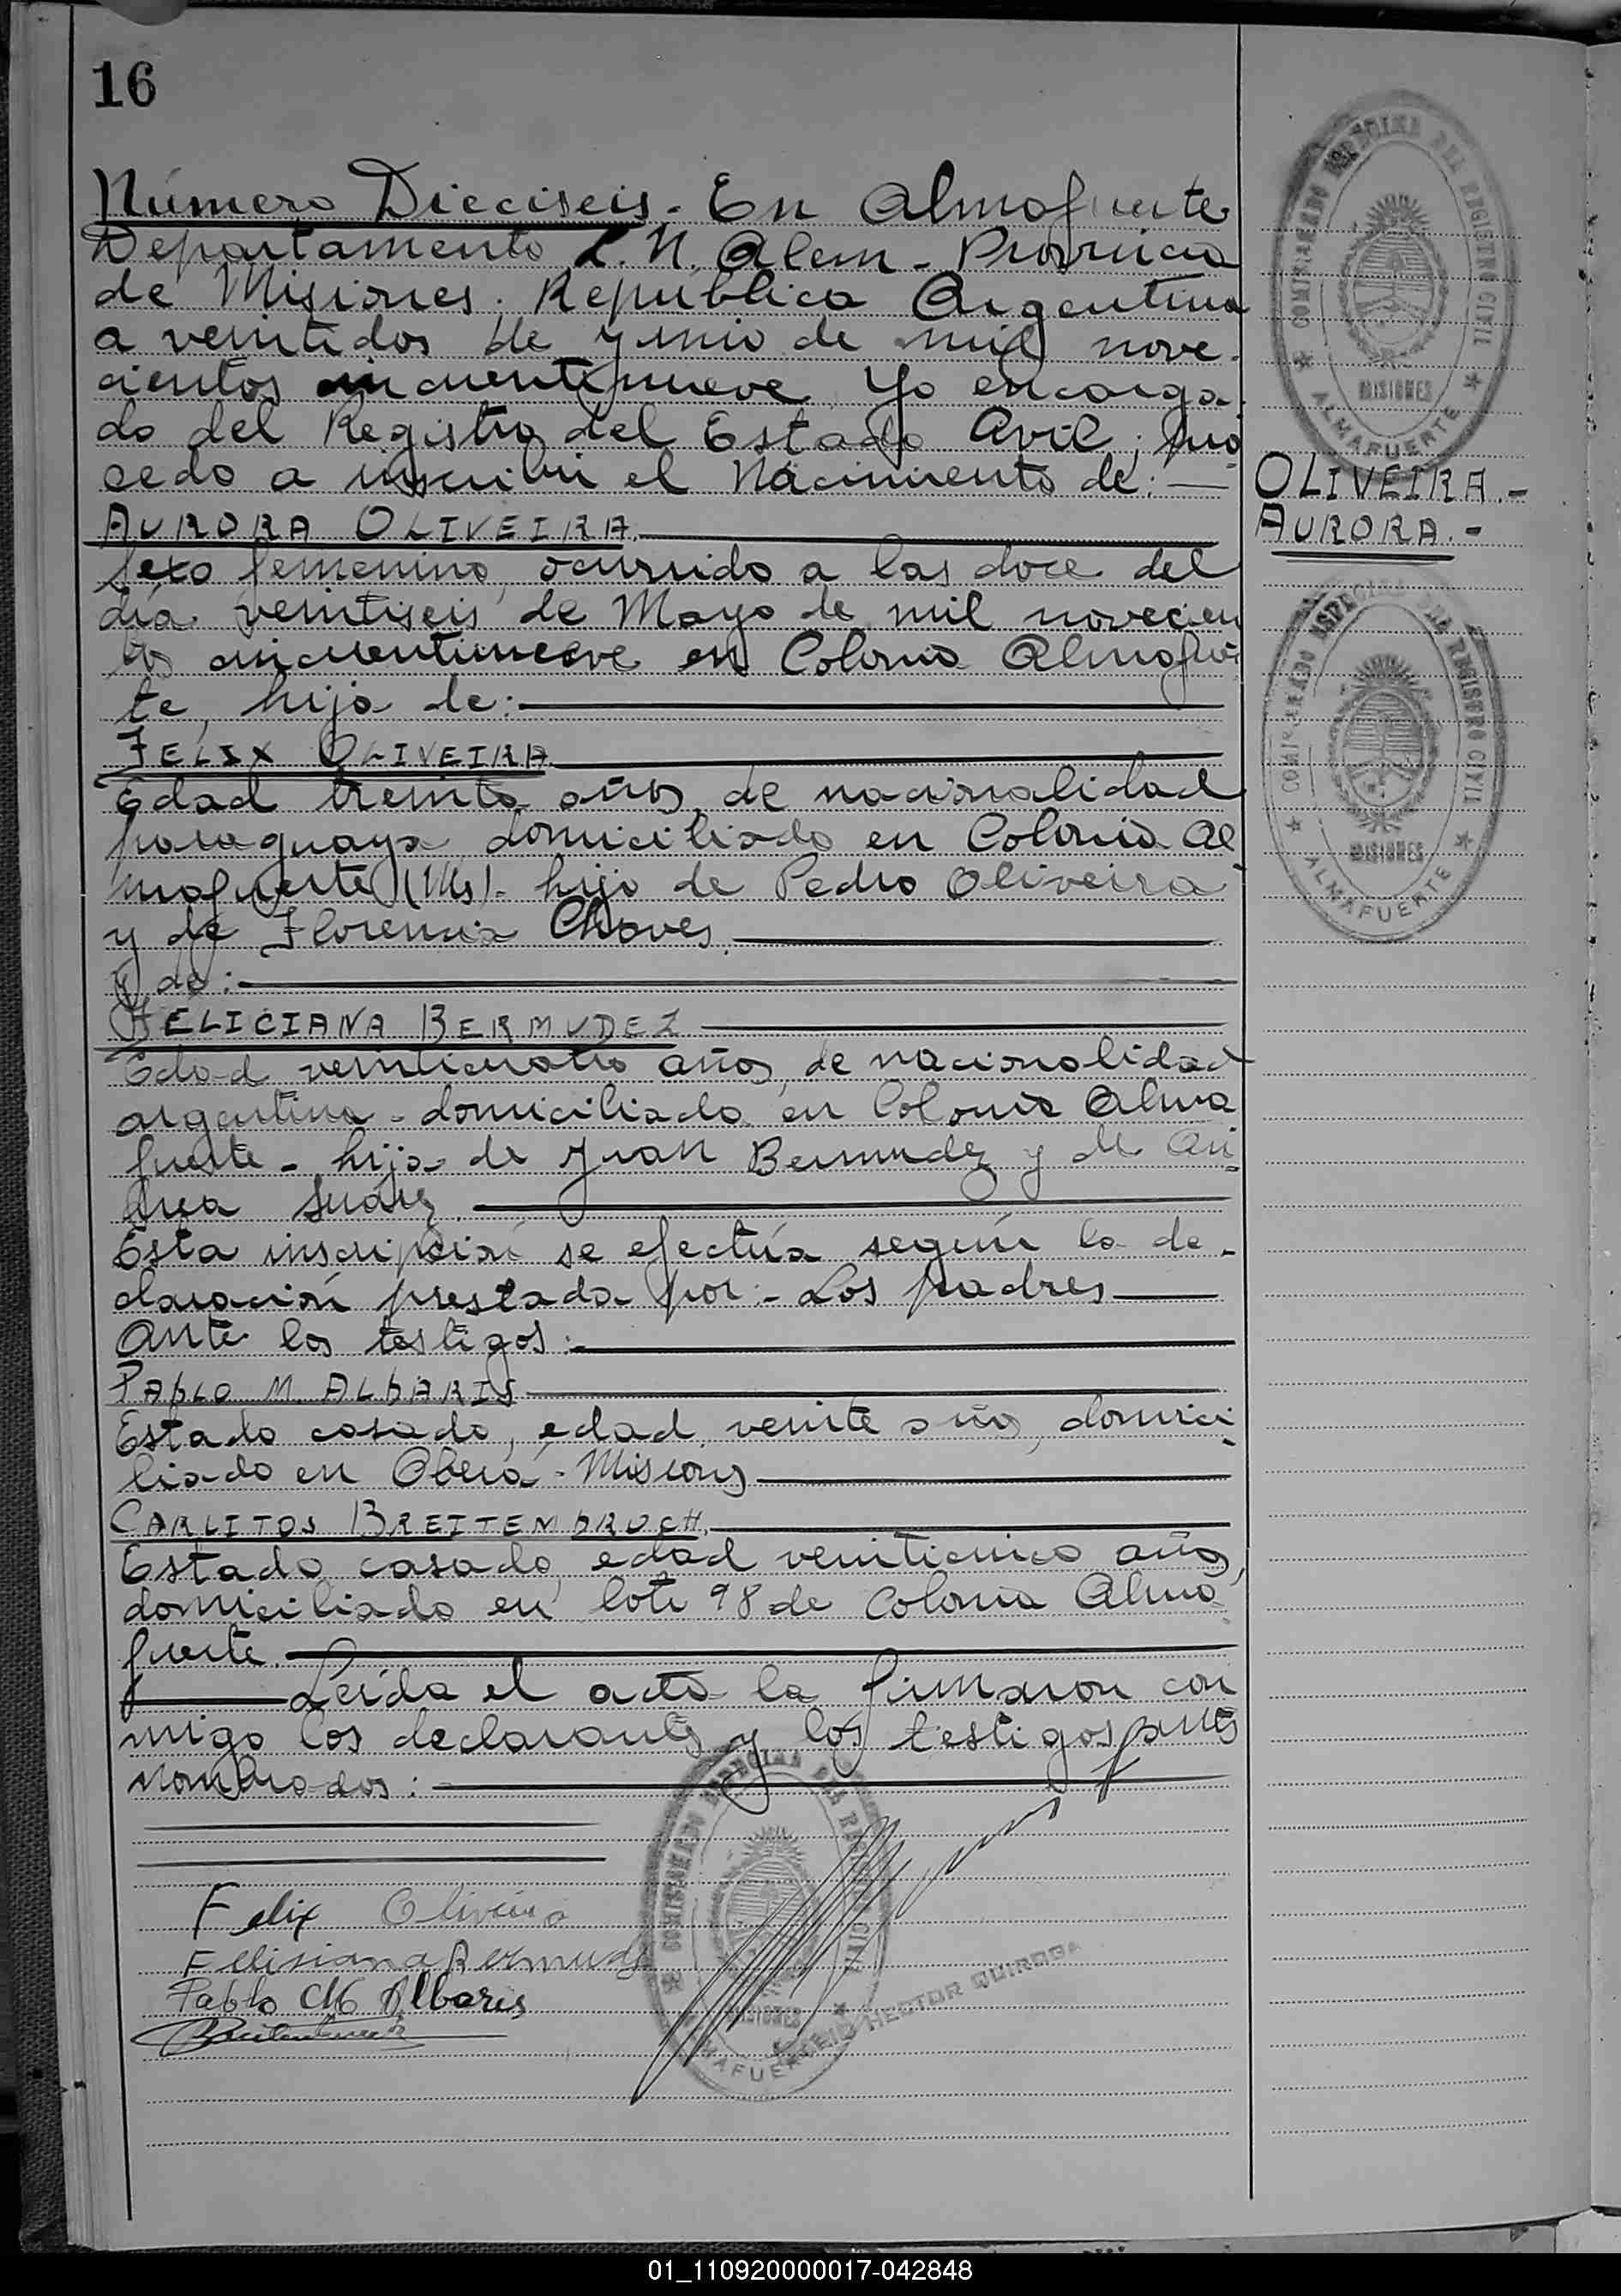 16
Número Dieciseis. En Almafuerte
Departamento L. N. Alem - Provincia
de Misiones. República Argentina
a veintidos de Junio de mil nove-
cientos cincuentinueve Yo encarga-
do del Registro del Estado Civil, pro-
cedo a inscribir el Nacimiento de:
AURORA OLIVEIRA.
Sexo femenino, ocurrido a las doce del
día veintiseis de Mayo de mil novecien
tos cincuentinueve en Colonia Almafuer
te, hija de:
FELIX OLIVEIRA
Edad treinta años, de nacionalidad
paraguaya domiciliado en Colonia Al-
mafuerte (Ms). hijo de Pedro Oliveira
y de Florencia Chaves.
y de:
FELICIANA BERMUDEZ
Edad veinticuatro años, de nacionalidad
argentina - domiciliada en Colonia Alma
fuerte - hija de Juan Bermudez y de An-
drea Suárez.
Esta inscripción se efectúa según la de-
claración prestada por:- Los padres
Ante los testigos:
PAbLO M. ALbARIS
Estado casado, edad, veinte años, domici-
liado en Oberá - Misiones
CARLITOS BREITEMbRUCH.
Estado casado, edad veinticinco años,
domiciliado en lote 98 de Colonia Alma-
fuerte.
Leída el acta la firmaron con
migo los declarantes y los testigos antes
nombrados:
Felix Oliveira
Felisiana Bermudez
Pablo M Albaris
HECTOR QUIROGA
COMISIONADO ESPECIAL DEL REGISTRO CIVIL
MISIONES
ALMAFUERTE
COMISIONADO ESPECIAL DEL REGISTRO CIVIL
MISIONES
ALMAFUERTE
OLIVEIRA.-
AURORA.-
COMISIONADO ESPECIAL DEL REGISTRO CIVIL
MISIONES
ALMAFUERTE
01_110920000017-042848